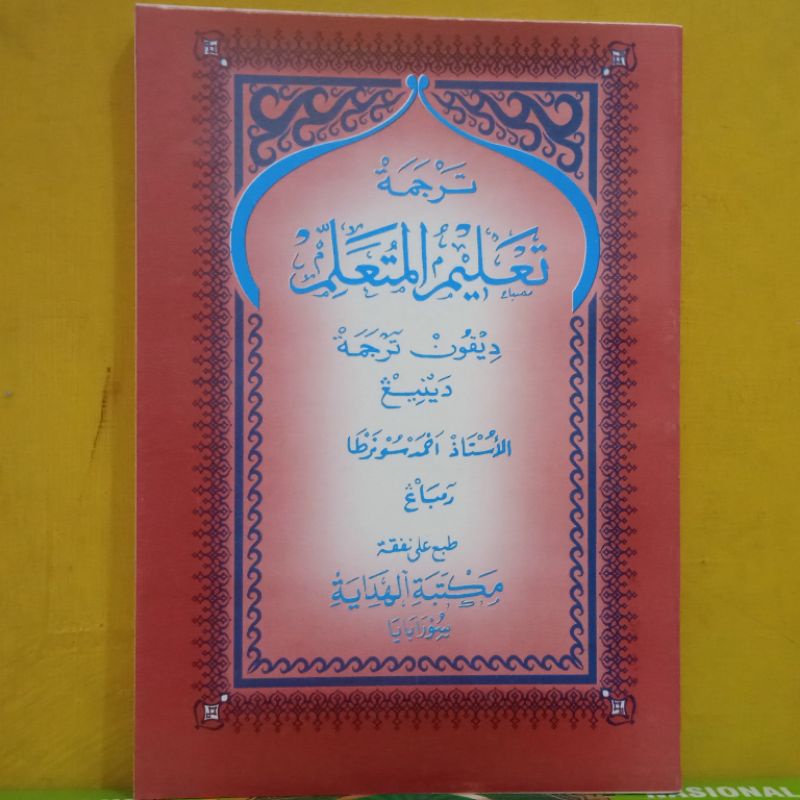 تَرْجَمَةْ
تَعْلِيْمُ الْمُتَعَلِّمْ
مصباح
دِيْڤُوْنْ تَرْجَمَةْ
دَيْنِيْڠْ
الأُسْتَاذْ اَحْمَدْ سُوْنَرْطَا
رَمْبَاڠْ
طبع على نفقة
مَكْتَبَةْ الْهِدَايَةْ
سُوْرَابَايَا
NASIONAL